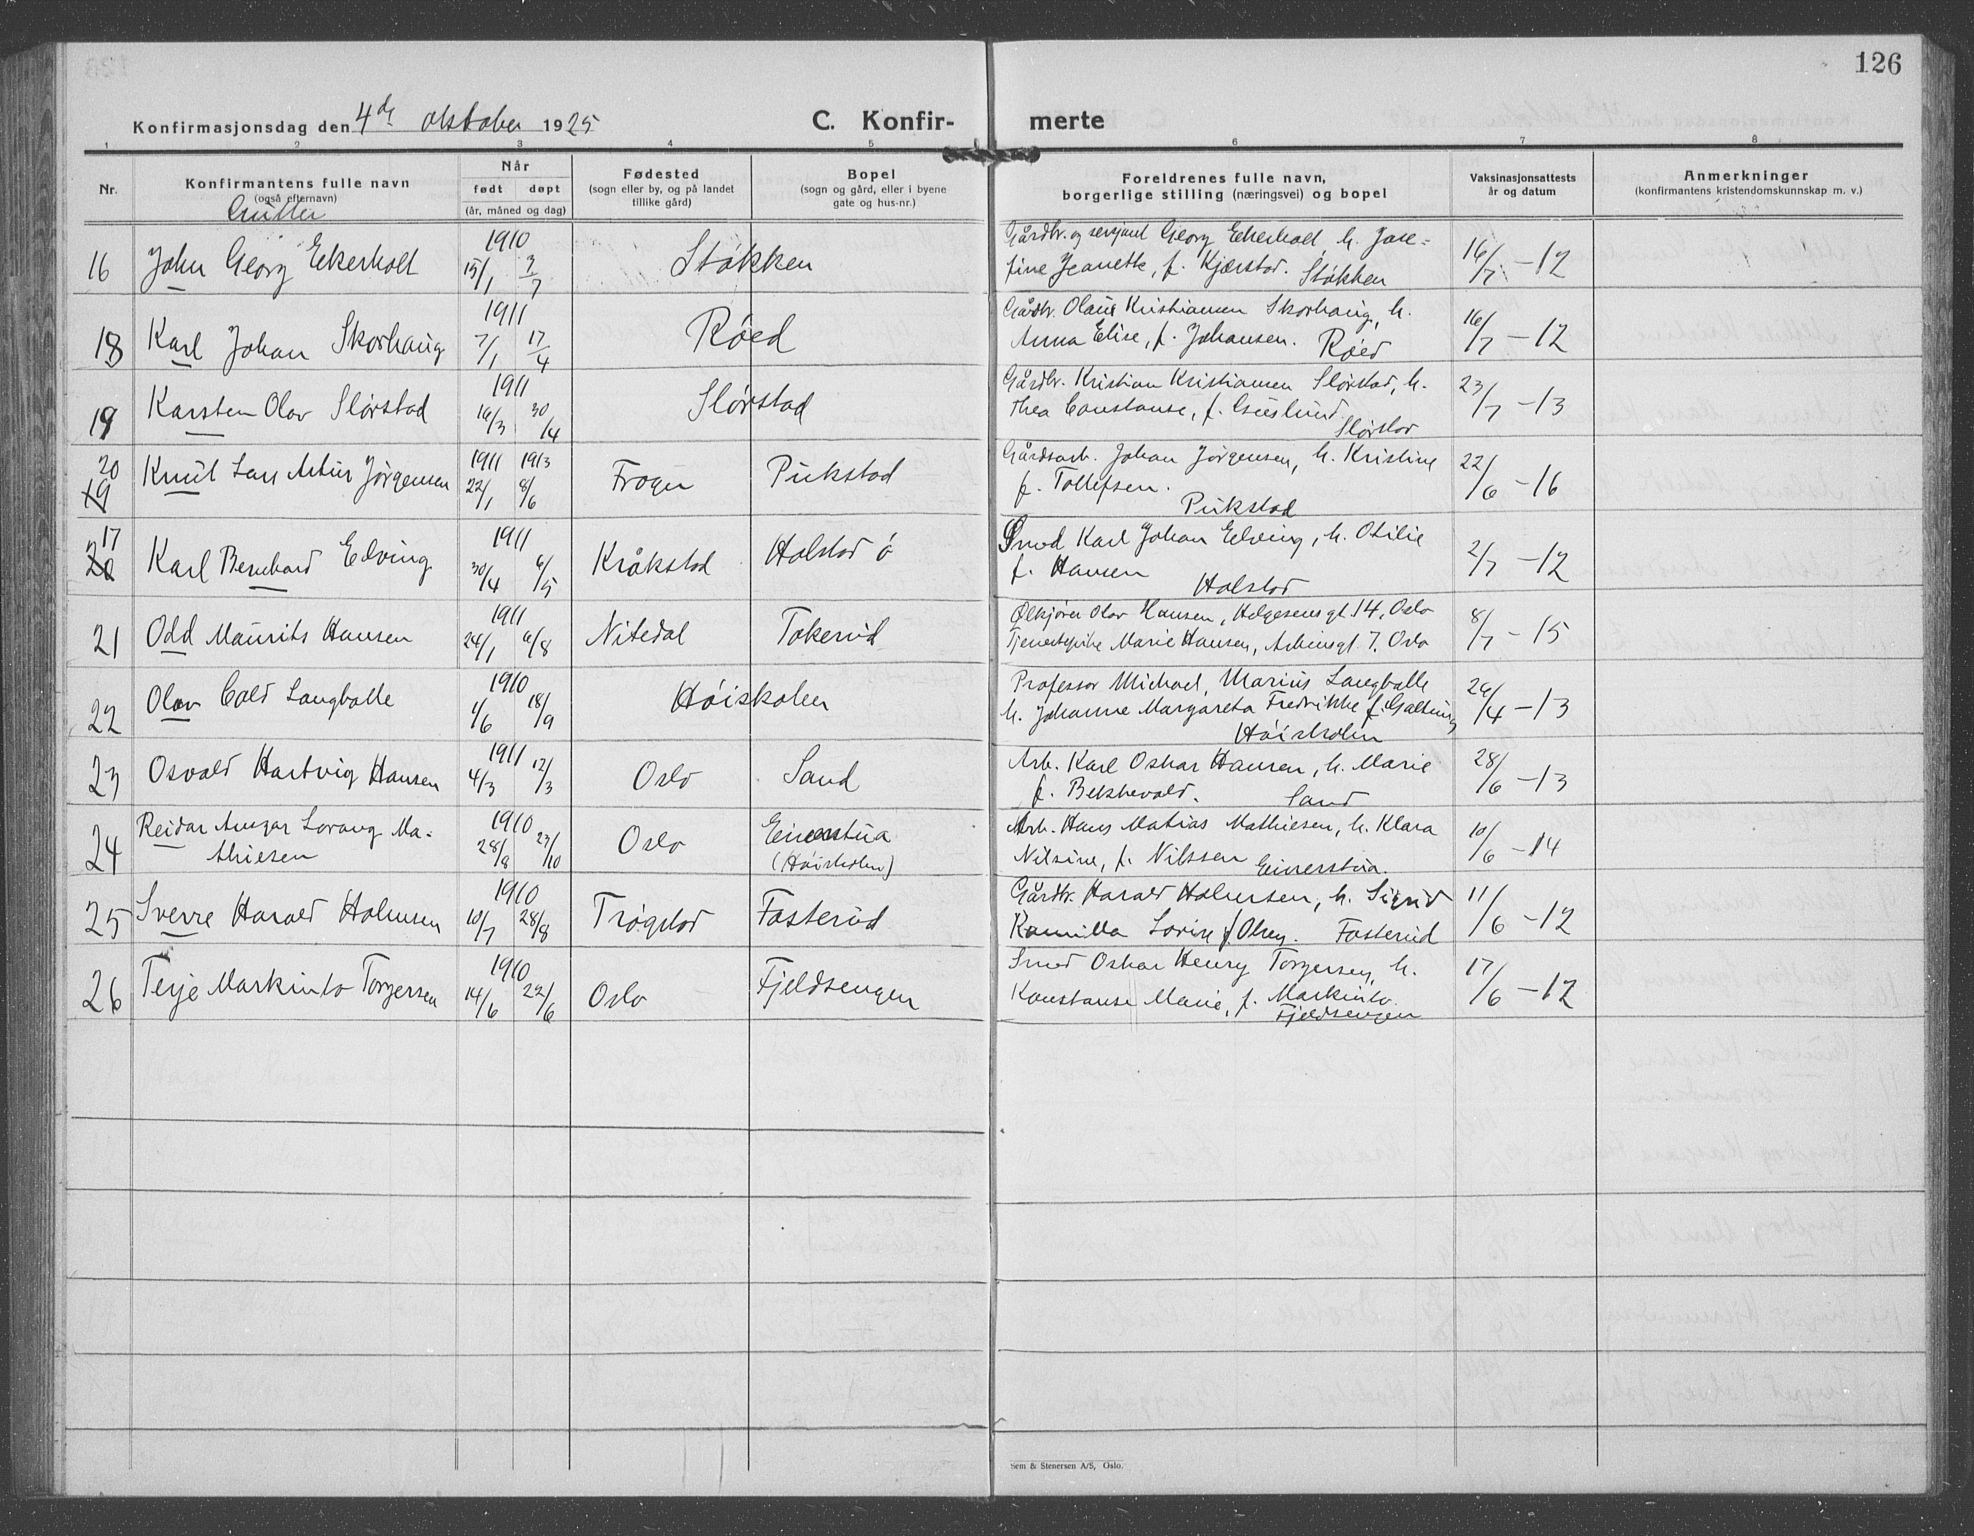 126
Konfirmasjonsdag den 4de oktober 1925
C. Konfir- merte
1 2 3 4 5 6 7 8
Nr.
Konfirmantens fulle navn
(også efternavn)
Gutter
Når
født døpt
(år, måned og dag)
Fødested
(sogn eller by, og på landet
tillike gård)
Bopel
(sogn og gård, eller i byene
gate og hus-nr.)
Foreldrenes fulle navn,
borgerlige stilling (næringsvei) og bopel
Vaksinasjonsattests
år og datum
Anmerkninger
(konfirmantens kristendomskunnskap m. v.)
16 John Georg Ekerholt 1910 15/1 3/7 Støkken
Gårdbr. og sersjant Georg Ekerholt, h. Jose-
fine Jeanette, f. Kjærstad. Støkken 16/7 - 12
18 Karl Johan Skorhaug 1911 7/1 17/4 Røed
Gårdbr. Olaus Kristiansen Skorhaug, h.
Anna Elise, f. Johansen. Røed 16/7 - 12
19 Karsten Olav Slørstad 1911 16/3 30/4 Slørstad
Gårdbr. Kristian Kristiansen Slørstad, h.
Thea Constanse, f. Guslund
Slørstad 23/7 - 13
20 19 Knut Lars Artur Jørgensen 1911 22/1 1913 8/6 Frogn Pukstad
Gårdsarb. Johan Jørgensen, h. Kristine
f. Tollefsen.
Pukstad 22/6 - 16
17 20 Karl Bernhard Edving 1911 30/4 6/5 Kråkstad Holstad ø
Smed Karl Johan Edving, h. Otilie
f. Hansen
Holstad 2/7 - 12
21 Odd Maurits Hansen 1911 24/1 6/8 Nitedal Tokerud
Ølkjører Olav Hansen, Helgesensgt 14, Oslo
Tjenestepike Marie Hansen, Arbinsgt. 7. Oslo 8/7 - 15
22 Olav Cold Langballe 1910 1/6 18/9 Høiskolen
Professor Michael, Marius Langballe
h. Johanne Margareta Fredrikke f. Galtung
Høiskolen 26/4 - 13
23 Osvald Hartvig Hansen 1911 4/3 12/3 Oslo Sand
Arb. Karl Oskar Hansen, h. Marie
f. Bekkevold. Sand 28/6 - 13
24 Reidar Ansgar Lorang Ma-
thiesen 1910 28/8 23/10 Oslo Einerstua
(Høiskolen)
Arb. Hans Matias Mathiesen, h. Klara
Nilsine, f. Nilssen Einerstua. 10/6 - 14
25 Sverre Harald Holmsen 1910 10/7 28/8 Trøgstad Fosterud
Gårdbr. Harald Holmsen, h. Sigrid
Kamilla Lovise f. Olsen. Fosterud 11/6 - 12
26 Terje Markinto Torgersen 1910 14/6 22/6 Oslo Fjeldsengen
Smed Oskar Henry Torgersen, h.
Konstanse Marie, f. Markinto.
Fjeldsengen 17/6 - 12
Sem & Stenersen A/S, Oslo.